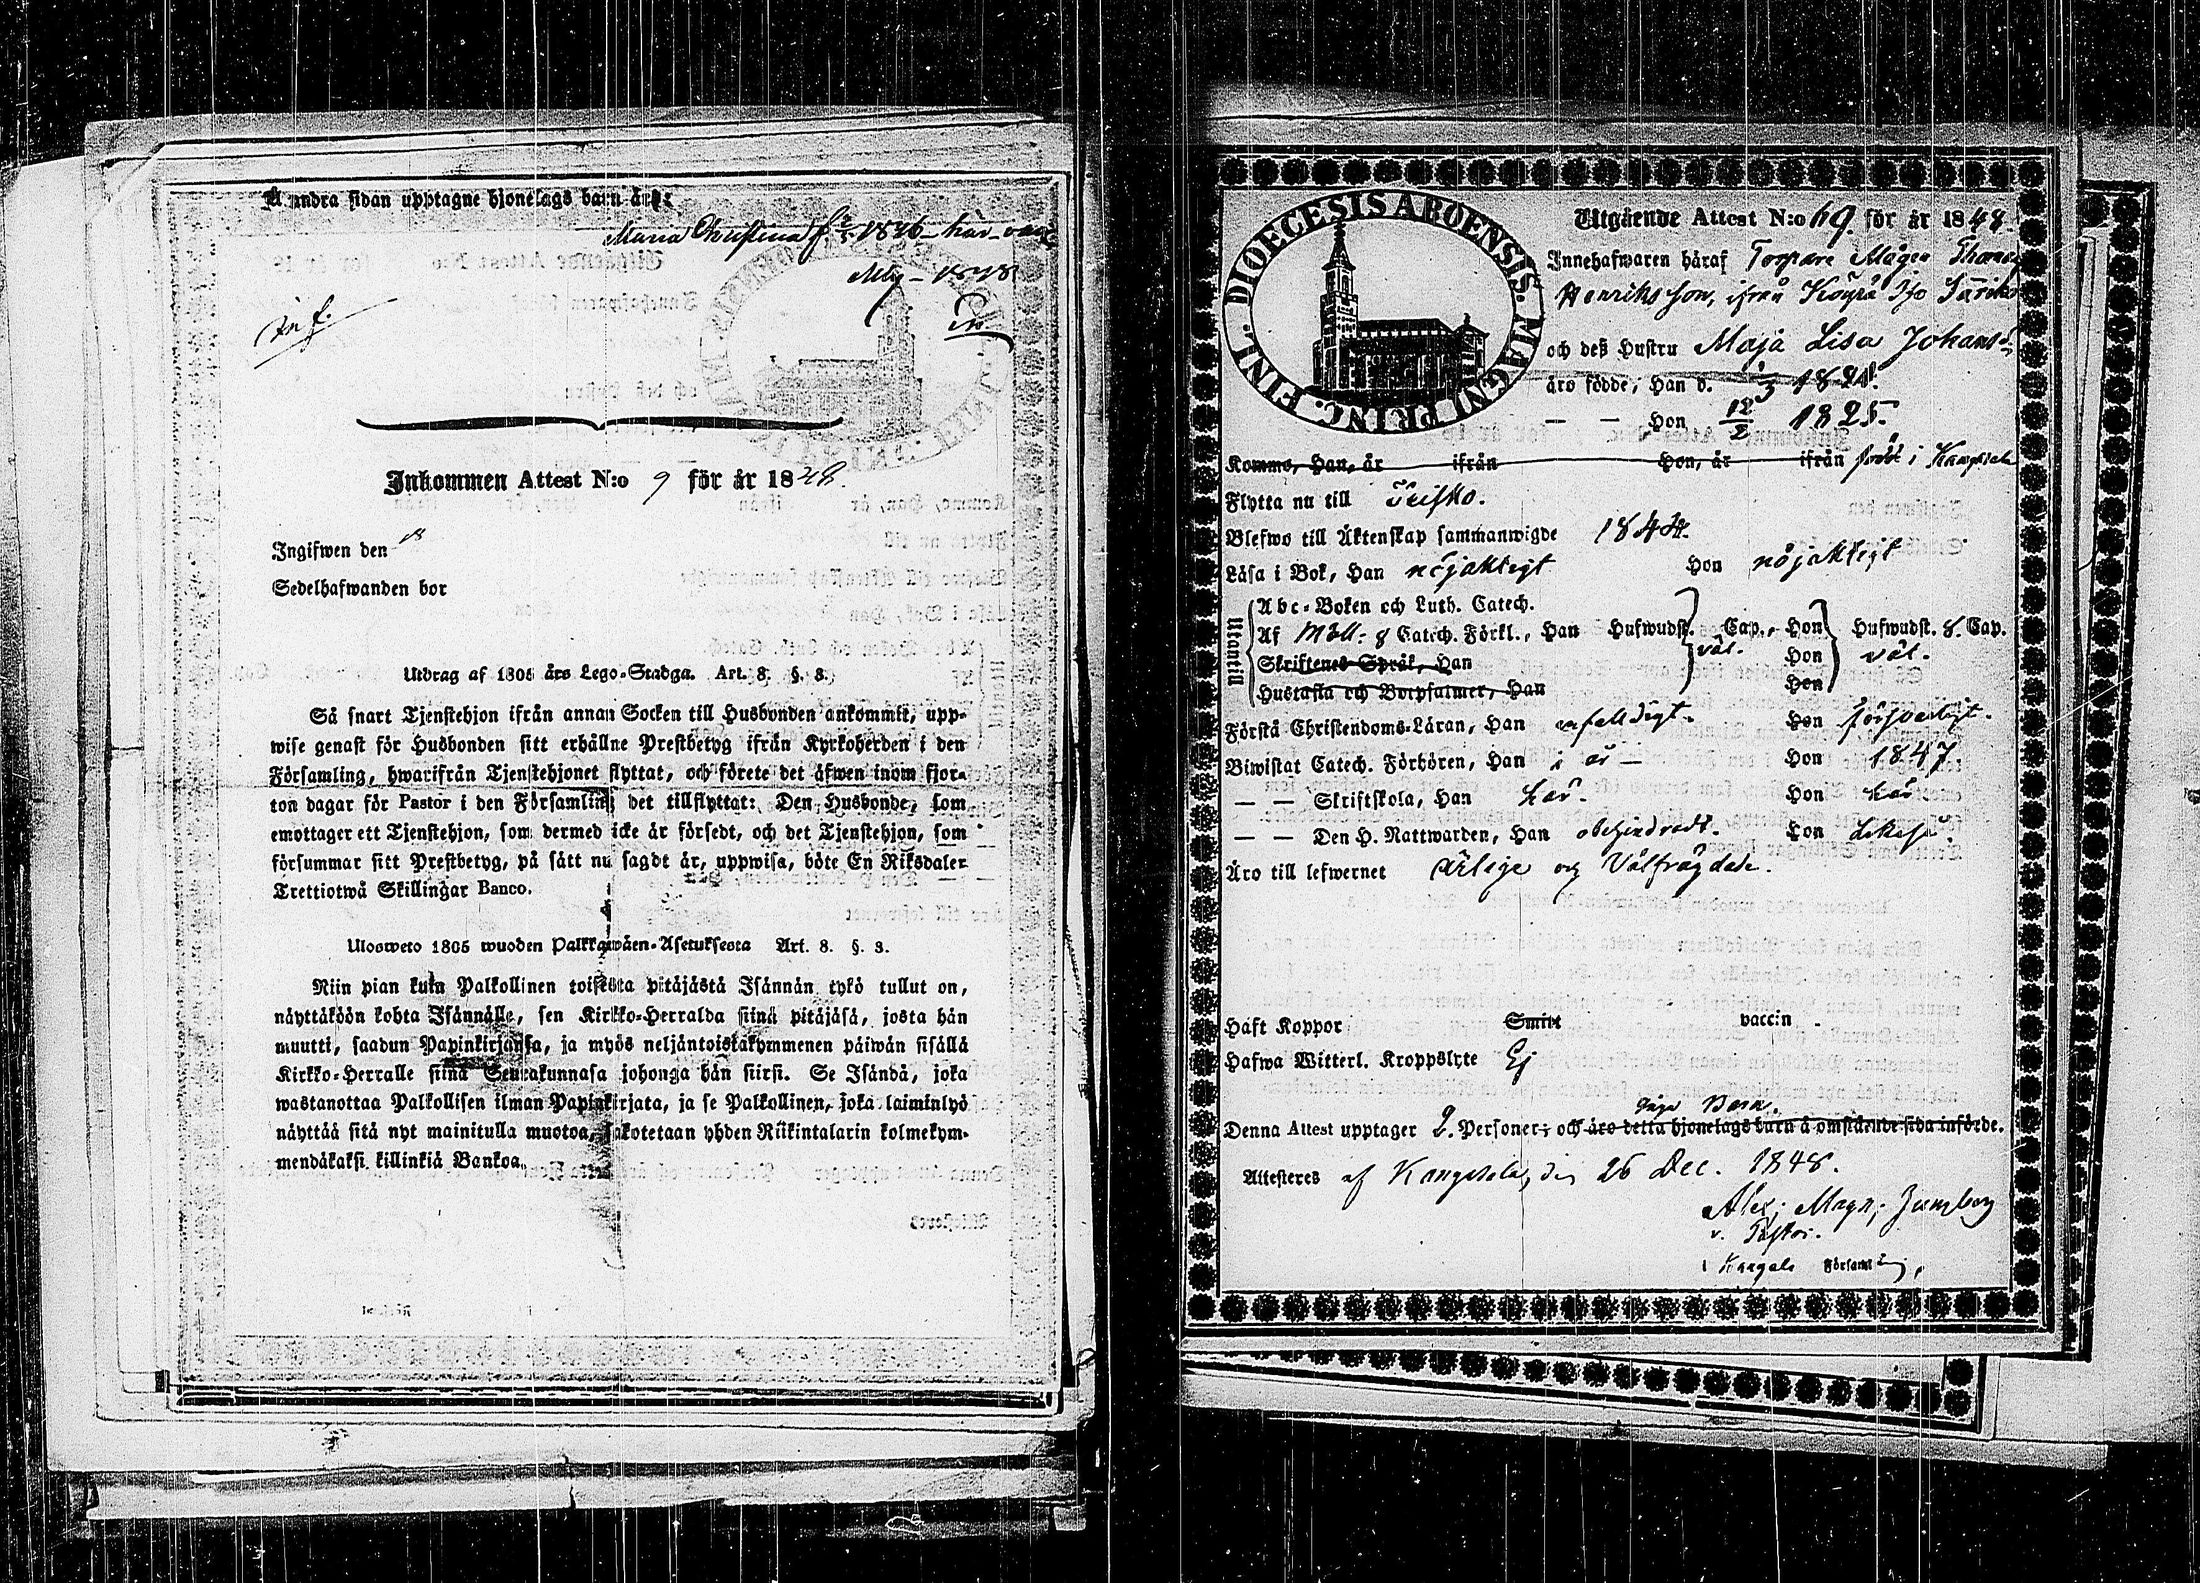 Å andra sidan upptagne hjonelags barn äro:
Maria Christina f. 1846 här
1848
Inkommen Attest N:o 9 för år 1848.
Ingifwen den
Sedelhafwanden bor
Utdrag af 1805 års Lego-Stadga. Art. 8. §. 3.
Så snart Tjenstehjon ifrån annan Socken till Husbonden ankommit, upp-
wise genast för Husbonden sitt erhållne Prestbetyg ifrån Kyrkoherden i den
Församling, hwarifrån Tjenstehjonet flyttat, och förete det äfwen inom fjor-
ton dagar för Pastor i den Församling det tillflyttat: Den Husbonde, som
emottager ett Tjenstehjon, som dermed icke är försedt, och det Tjenstehjon, som
försummar sitt Prestbetyg, på sätt nu sagdt är, uppwisa, böte En Riksdaler
Trettiotwå Skillingar Banco.
Ulosweto 1805 wuoden Palkkawäen-Asetuksesta Art. 8. §. 3.
Niin pian kuin Palkollinen toisesta pitäjästä Isännän tykö tullut on,
näyttäköön kohta Isännälle, sen Kirkko-Herralda siinä pitäjäsä, josta hän
muutti, saadun Papinkirjansa, ja myös neljäntoistakymmenen päiwän sisällä
Kirkko-Herralle siinä Seurakunnasa johonga hän siirsi. Se Isändä, joka
wastanottaa Palkollisen ilman Papinkirjata, ja se Palkollinen, joka laiminlyö
näyttää sitä nyt mainitulla muotoa, sakotetaan yhden Riikintalarin kolmekym-
mendäkaksi killinkiä Bankoa.
DIOECESIS ABOENSIS. MAGNI PRINC. FINL.
Utgående Attest N:o 69. för år 1848.
Innehafwaren häraf Torpare Mågen Thomas
Henriksson, ifrån
och deß Hustru Maja Lisa Johansd.
äro födde, Han d. 3 1821.
— — Hon 12/2 1825.
Komme, Han, år ifrån Hon, år ifrån född i Kangasala
Flytta nu till Teisko.
Blefwo till Äktenskap sammanwigde 1844.
Läsa i Bok, Han nöjaktigt Hon nöjaktigt
Utantill
Abc-Boken och Luth. Catech.
Af Möll. 8 Catech. Förkl., Han Hufwudst. Cap., Hon Hufwudst. 8. Cap.
Skriftenes Språk, Han väl. Hon väl.
Hustafla och Botpsalmer, Han Hon
Förstå Christendoms-Läran, Han enfalldigt. Hon försvarligt.
Biwistat Catech. Förhören, Han i år — Hon 1847.
— — Skriftskola, Han här. Hon här
— — Den H. Nattwarden, Han obehindradt. Hon likaså.
Äro till lefwernet ärlige och Välfrägdade.
Haft Koppor Smitt vaccin
Hafwa Witterl. Kroppslyte Ej
inga Barn.
Denna Attest upptager 2. Personer; och äro detta hjonelags barn å omstående sida införde.
Attesteres af Kangasala, den 26 Dec. 1848.
Alex. Magn.
v. Pastor.
i Kangala Församling,